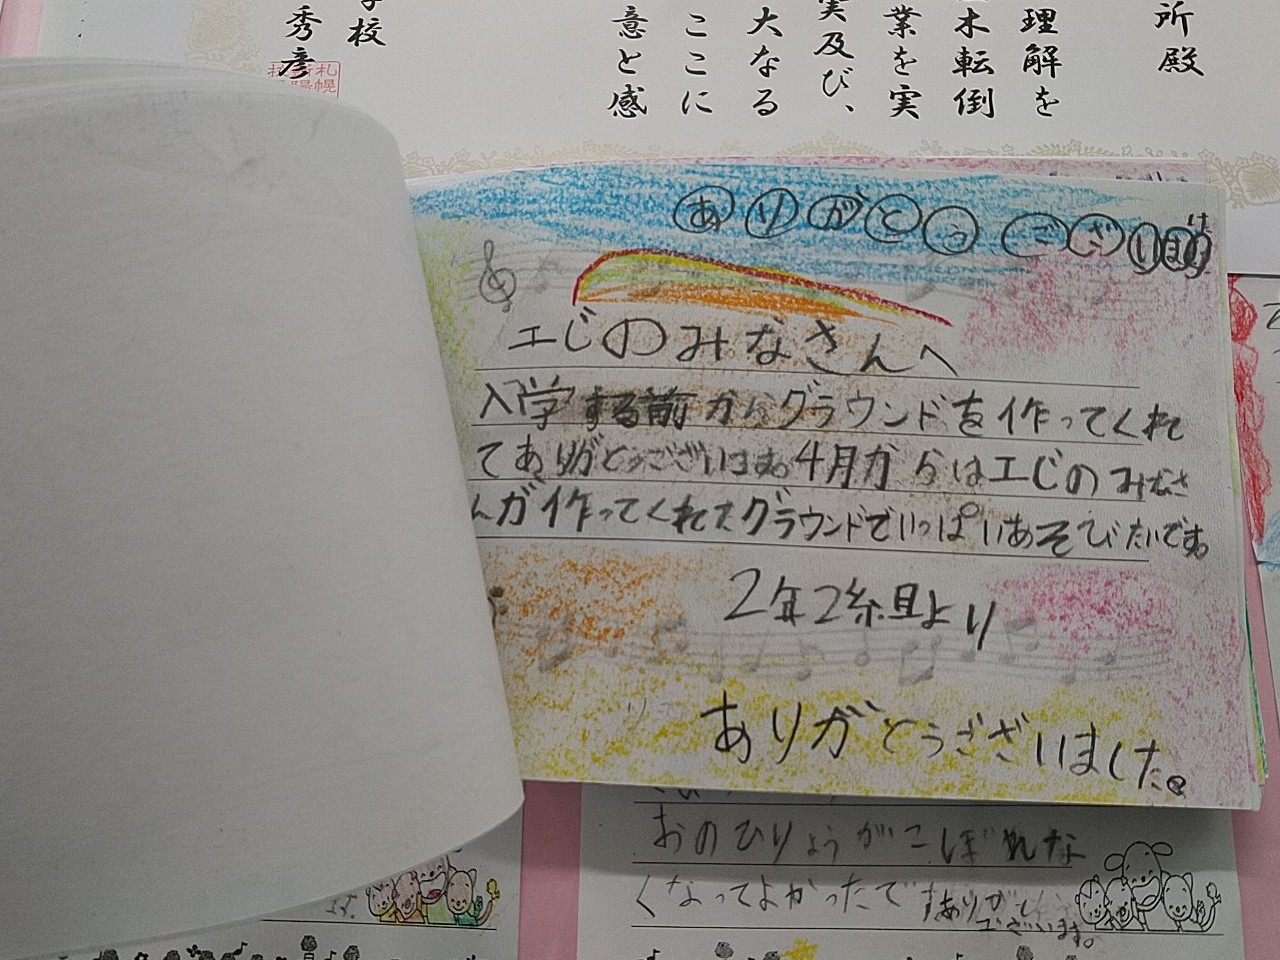 所殿
理解を
木転倒
業を実
実及び、
大なる
ここに
意と感
学校
秀彦
札幌
ありがとうございました
エじのみなさんへ
入学する前からグラウンドを作ってくれ
てありがとうございます。4月からはエじのみなさ
んが作ってくれたグラウンドでいっぱいあそびたいです。
2年2組より
ありがとうございました。
おのひりょうがこぼれな
くなってよかったです ありがとう
ございます。